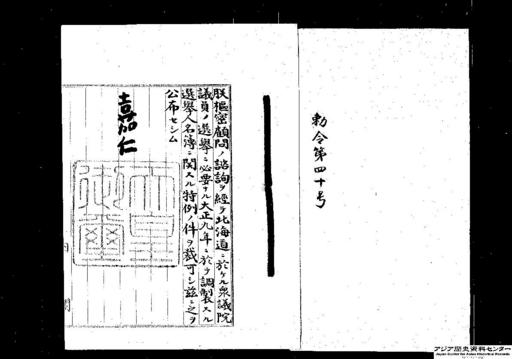 勅令第四十号
朕枢密顧問ノ諮詢ヲ経テ北海道ニ於ケル衆議院
議員ノ選挙ニ必要ナル大正九年ニ於テ調製スル
選挙人名簿ニ関スル特例ノ件ヲ裁可シ茲ニ之ヲ
公布セシム
嘉仁
天皇
御璽
アジア歴史資料センター
Japan Center for Asian Historical Records